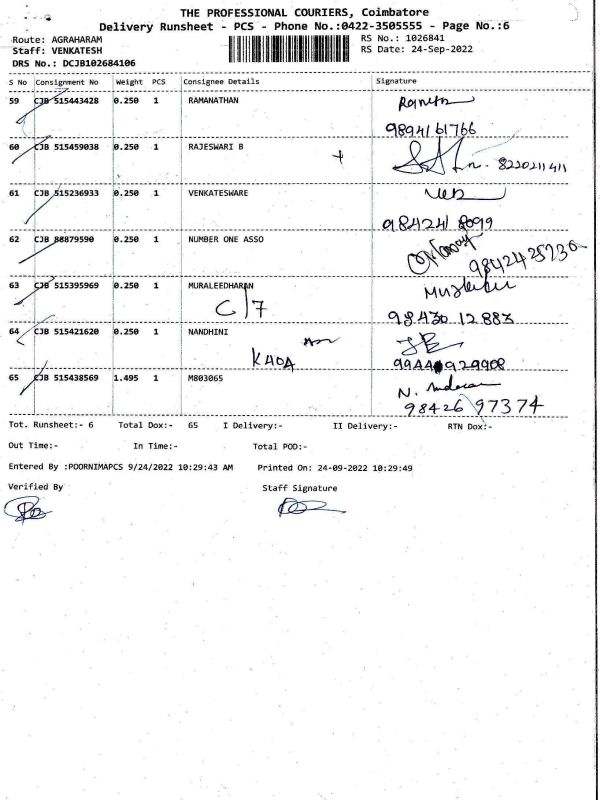 THE PROFESSIONAL COURIERS, Coimbatore
Delivery Runsheet - PCS - Phone No.:0422-3505555 - Page No.:6
Route: AGRAHARAM RS No.: 1026841
Staff: VENKATESH RS Date: 24-Sep-2022
DRS No.: DCJB102684106
S No Consignment No Weight PCS Consignee Details Signature
59 CJB 515443428 0.250 1 RAMANATHAN
9894161766
60 CJB 515459038 0.250 1 RAJESWARI B 8220211411
61 CJB 515236933 0.250 1 VENKATESWARE
984241 8099
62 CJB 88879590 0.250 1 NUMBER ONE ASSO
63 CJB 515395969 0.250 1 MURALEEDHARAN
C/7 98430 12883
64 CJB 515421620 0.250 1 NANDHINI
65 CJB 515438569 1.495 1 M803065
98426 97374
Tot. Runsheet:- 6 Total Dox:- 65 I Delivery:- II Delivery:- RTN Dox:-
Out Time:- In Time:- Total POD:-
Entered By :POORNIMAPCS 9/24/2022 10:29:43 AM Printed On: 24-09-2022 10:29:49
Verified By Staff Signature